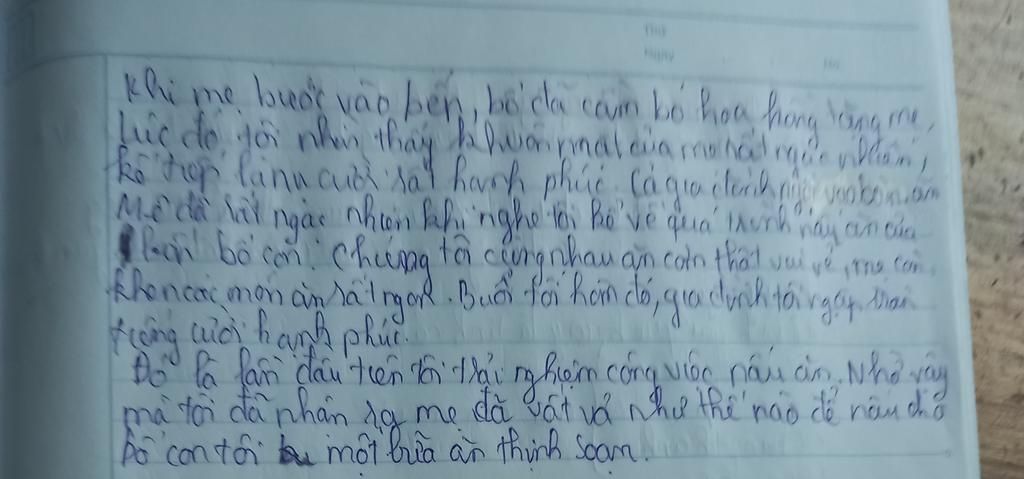 Thứ
Ngày
Khi mẹ bước vào bếp, bố đã cầm bó hoa hồng tặng mẹ,
Lúc đó tôi nhìn thấy khuôn mặt của mẹ rất ngạc nhiên,
kế tiếp là nụ cười rất hạnh phúc. Cả gia đình ngồi vào bàn ăn
Mẹ đã rất ngạc nhiên khi nghe tôi kể về quá trình nấy ăn của
bố con. Chúng tôi cùng nhau ăn cơm thật vui vẻ, mẹ còn
khen các món ăn rất ngon. Buổi tối hôm đó, gia đình tôi ngập tràn
tiếng cười hạnh phúc.
Đó là lần đầu tiên tôi trải nghiệm công việc nấu ăn. Nhờ vậy
mà tôi đã nhận ra mẹ đã vất vả như thế nào để nấu cho
bố con tôi một bữa ăn thịnh soạn.